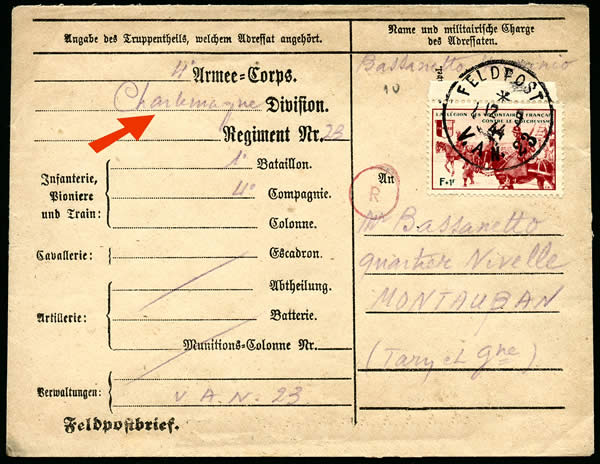 Angabe des Truppentheils, welchem Adressat angehört.
4e Armee-Corps.
Charlemagne Division.
Regiment Nr. 23
Infanterie,
Pioniere
und Train:
1e Bataillon.
4e Compagnie.
Colonne.
Cavallerie: Escadron.
Artillerie:
Abtheilung.
Batterie.
Munitions-Colonne Nr.
Verwaltungen: V.A.N. 23
Feldpostbrief.
Name und militairische Charge
des Adressaten.
Bassanetto
10
FELDPOST
V.A.N. 23
LA LÉGION DES VOLONTAIRES FRANÇAIS
CONTRE LE BOLCHEVISME
F+1F
R
An
Mr Bassanetto
quartier Nivelle
MONTAUBAN
(Tarn et Gne)